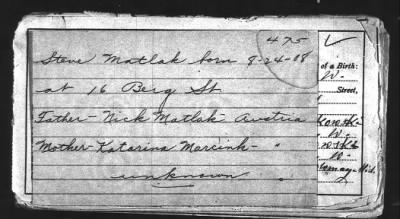 475
Steve Matlak born 9-24-08
at 16 Berg St
Father- Nick Matlak- Austria
Mother- Katarina Marcink- "
unknown "
of a Birth:
W-
Street,
W-
W-